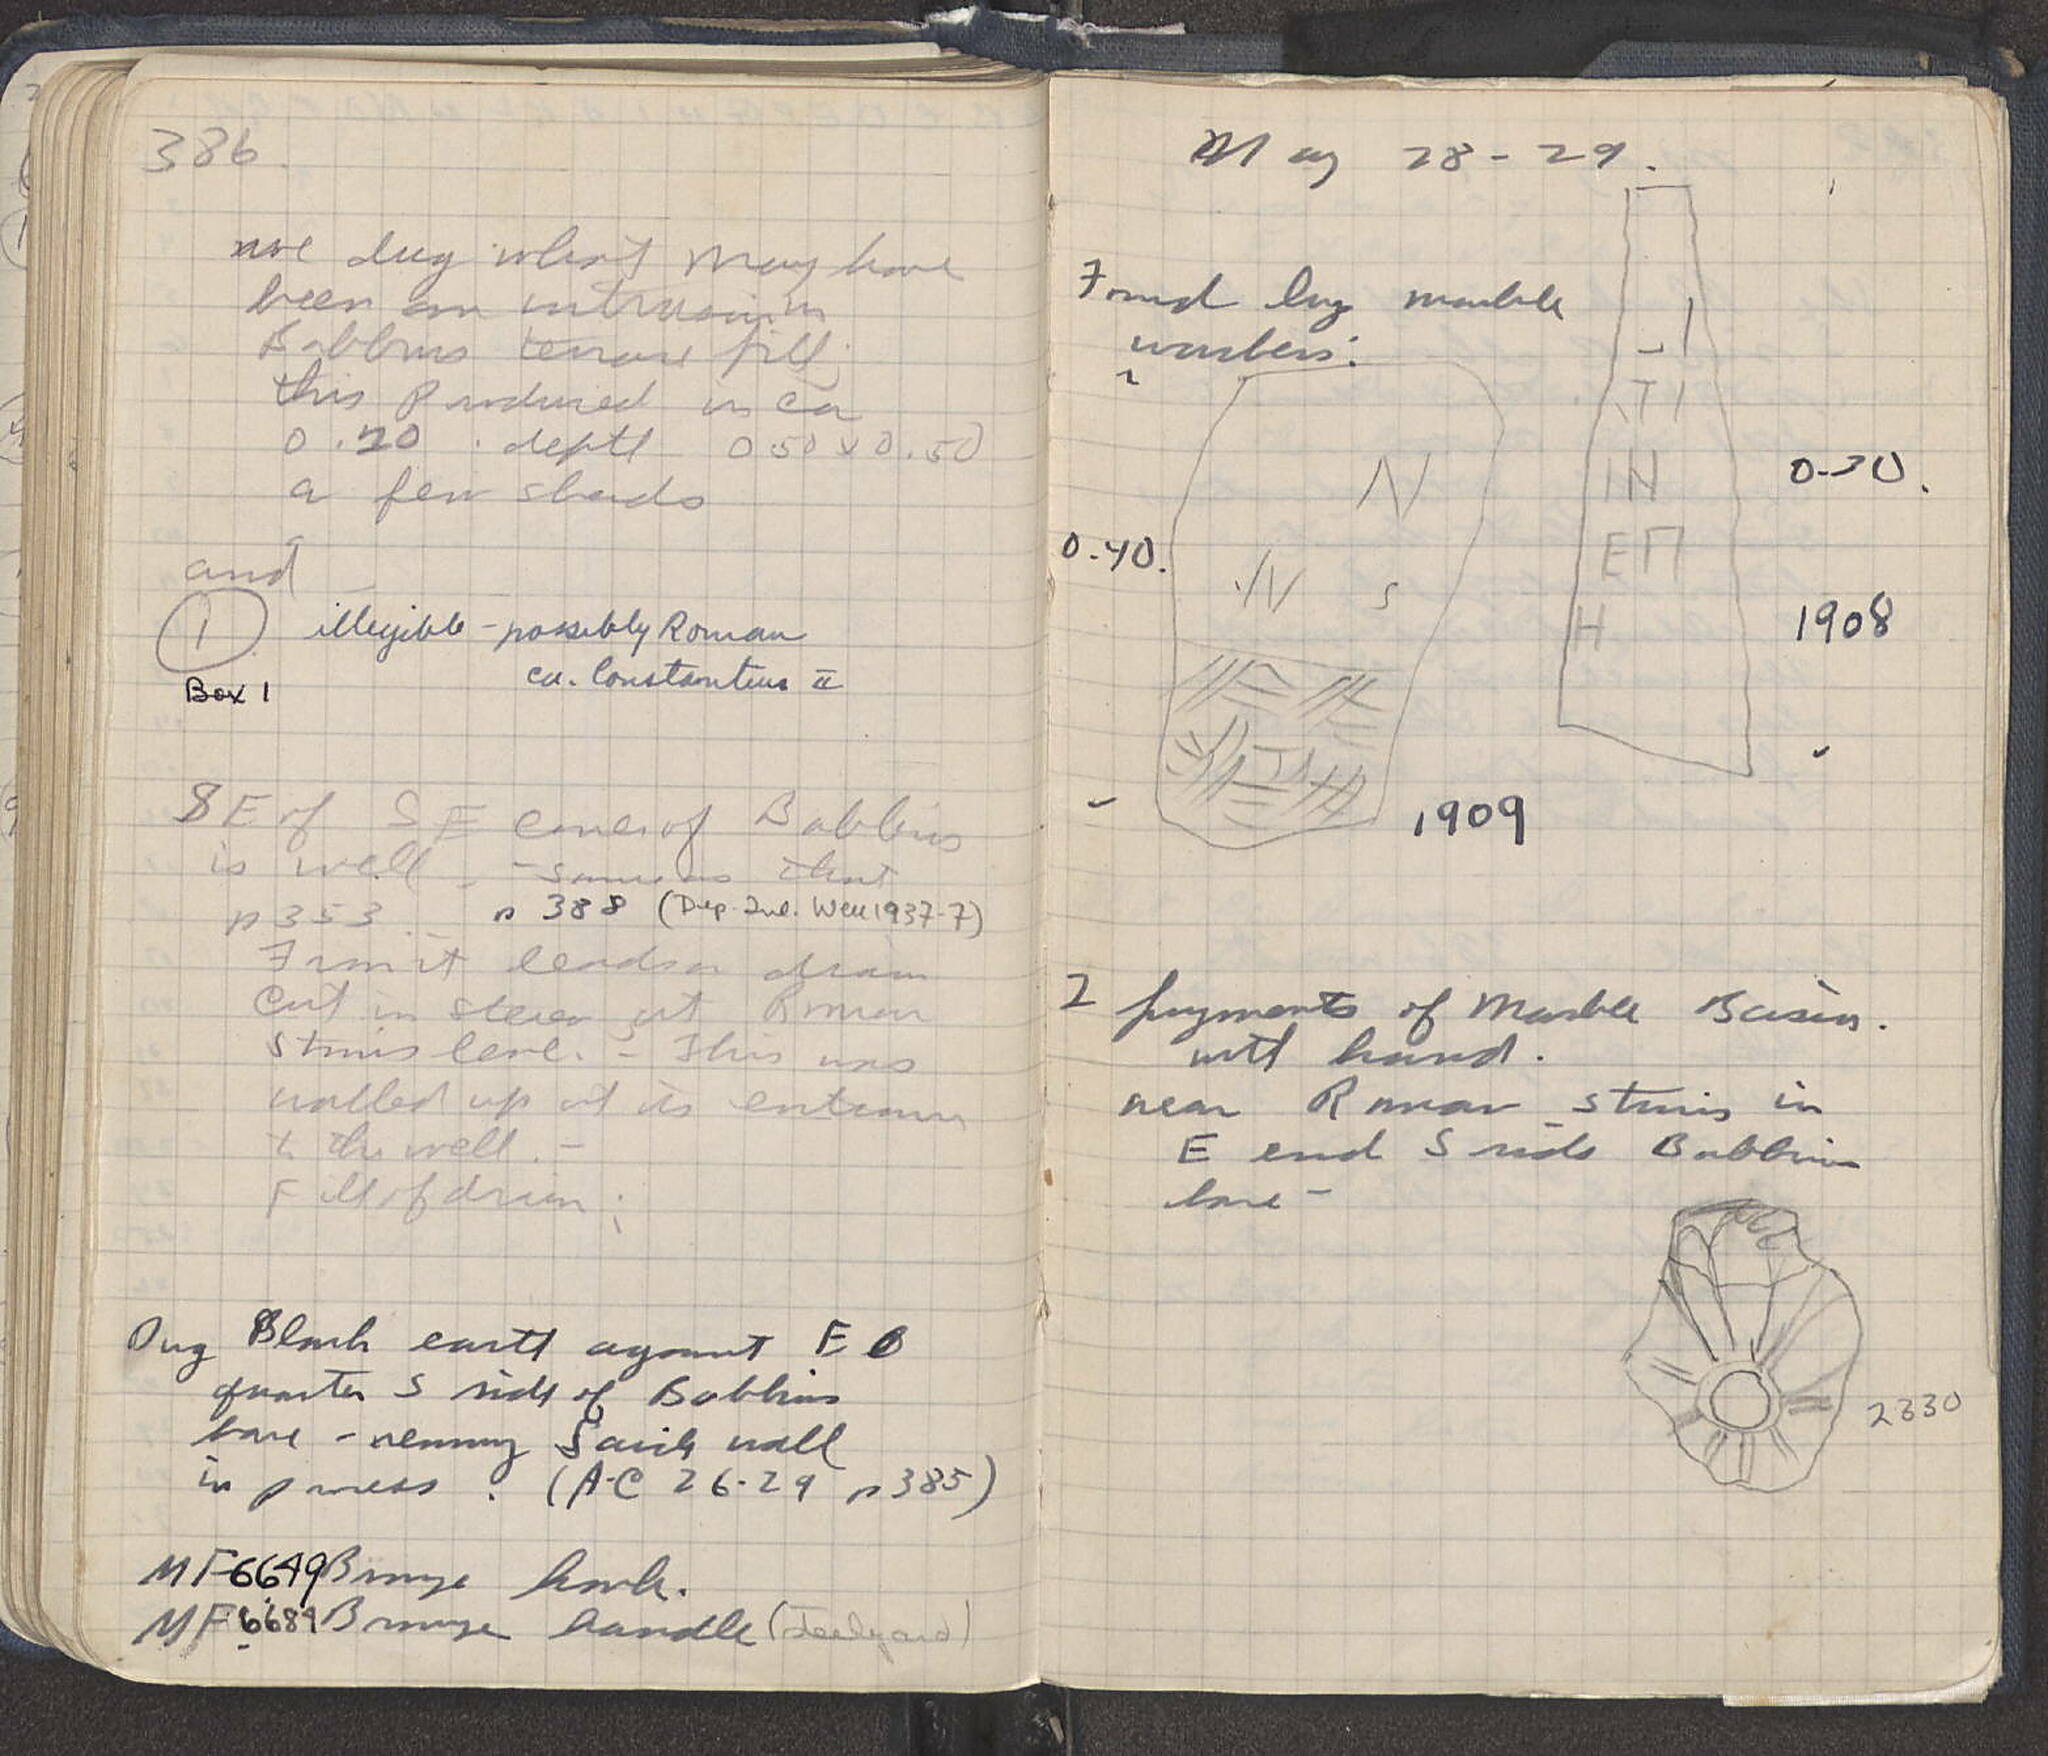 386.
we dug what may have
been an intrusion in
Babbius terrace fill.
this produced in ca
0.20 . depth 0.50 x 0.50
a few sherds
and
1 illegible - possibly Roman
ca. Constantius II
Box 1
SE of SE corner of Babbius
is well - same as that
p 353 p 388 (Dep. Inv. Well 1937-7)
From it leads a drain
cut in stereo at Roman
stairs level. - This was
walled up at its entrance
to the well. -
Fill of drain ;
Dug Black earth against E
quarter S side of Babbius
base - wall
in process . (A-C 26-29 p 385)
MF 6649 Bronze hook.
MF 6689 Bronze handle (Steelyard)
May 28 - 29.
Found by marble
workers:
TI
N
IN
0.30.
0.40.
N S
ΕΠ
H
1908
1909
2 fragments of Marble Basin.
with hand.
near Roman stairs in
E end S side Babbius
base -
2330